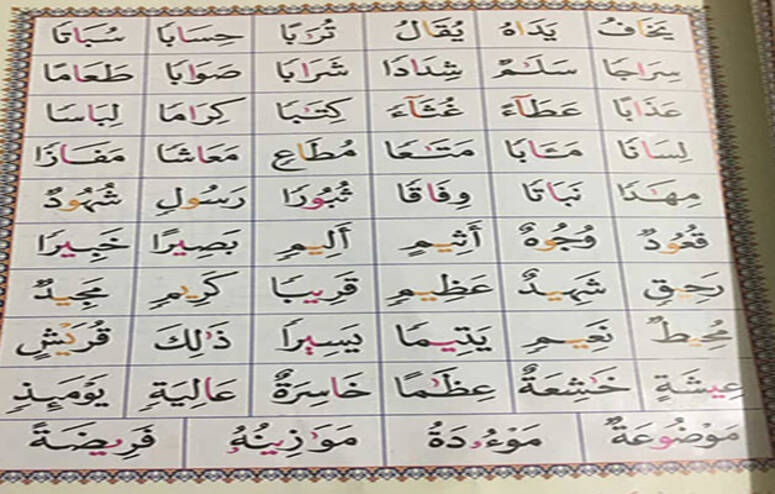 يَخَافُ يَدَاهُ يُقَالُ تُرَٰبًا حِسَابًا سُبَاتًا
سِرَاجًا سَلَٰمٌ شِدَادًا شَرَابًا صَوَابًا طَعَامًا
عَذَابًا عَطَآءً غُثَآءً كِتَٰبًا كِرَامًا لِبَاسًا
لِسَانًا مَـَٔابًا مَتَٰعًا مُطَاعٍ مَعَاشًا مَفَازًا
مِهَٰدًا نَبَاتًا وِفَاقًا ثُبُورًا رَسُولٍ شُهُودٌ
قُعُودٌ وُجُوهٌ أَثِيمٍ أَلِيمٍ بَصِيرًا خَبِيرًا
رَحِيقٍ شَهِيدٌ عَظِيمٍ قَرِيبًا كَرِيمٍ مَجِيدٌ
مُحِيطٌ نَعِيمٍ يَتِيمًا يَسِيرًا ذَٰلِكَ قُرَيْشٍ
عِيشَةٍ خَٰشِعَةٌ عِظَٰمًا خَاسِرَةٌ عَالِيَةٍ يَوْمَئِذٍ
مَوْضُوعَةٌ مَوْءُدَةُ مَوَٰزِينُهُۥ فَرِيضَةً